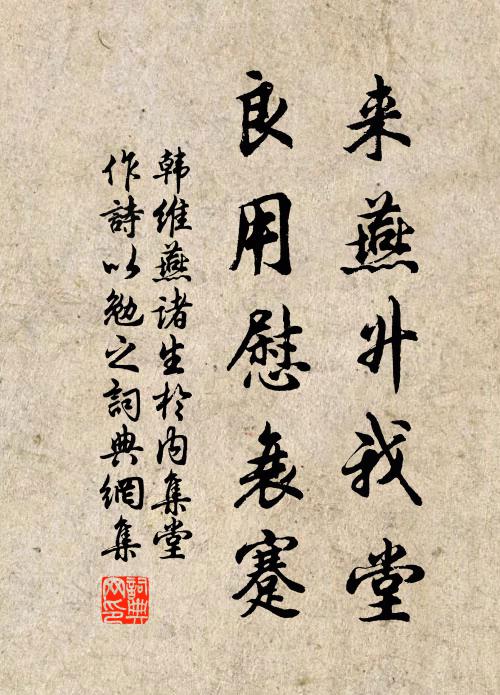 来燕升我堂
良用慰衰蹇
韩维燕诸生於内集堂
作詩以勉之詞典網集
詞典
网印